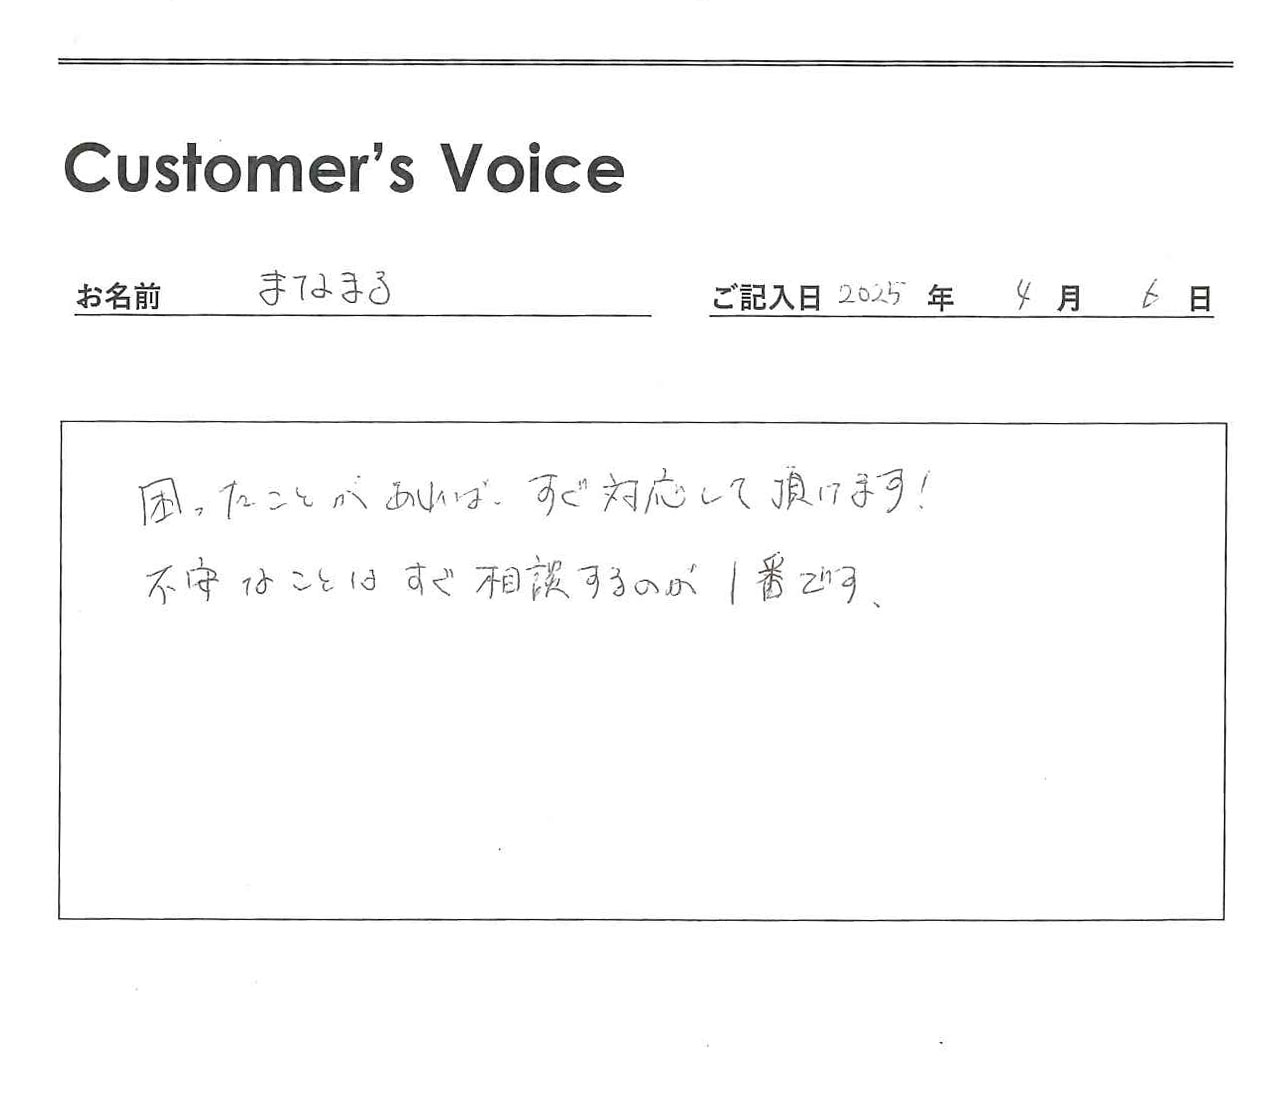 Customer's Voice
お名前 まなまる ご記入日 2025 年 4 月 6 日
困ったことがあれば、すぐ対応して頂けます!
不安なことはすぐ相談するのが1番です、